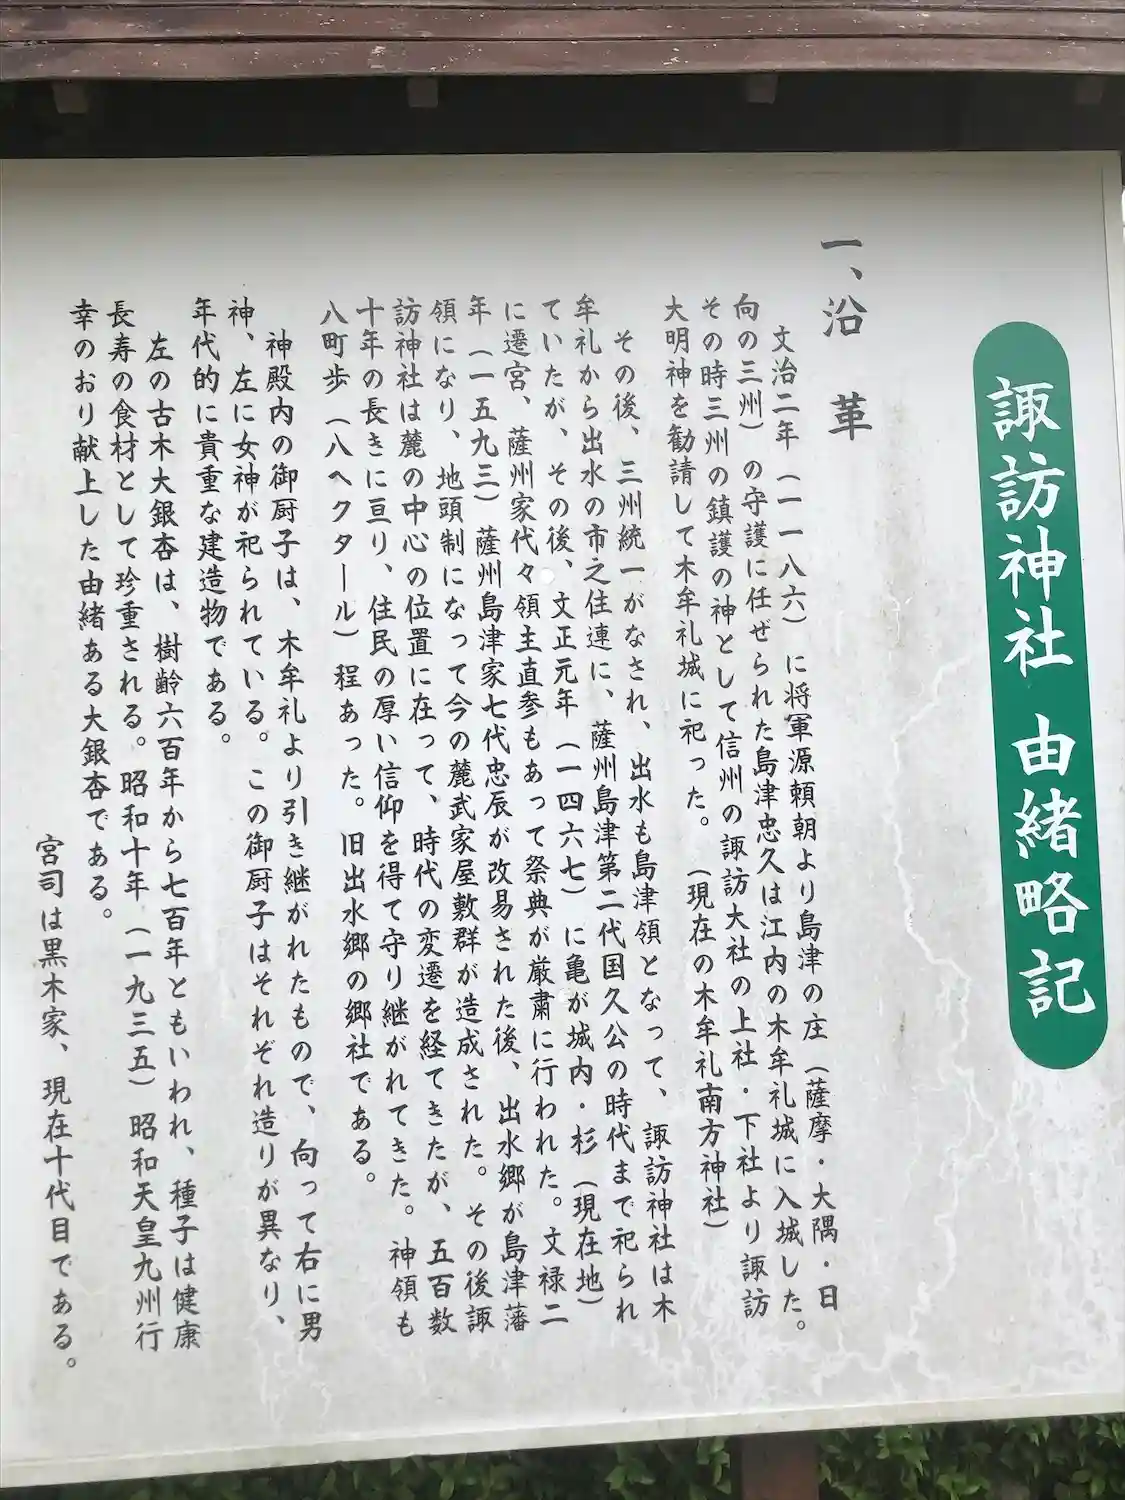 諏訪神社 由緒略記
一、沿 革
文治二年（一一八六）に将軍源頼朝より島津の庄（薩摩・大隅・日
向の三州）の守護に任ぜられた島津忠久は江内の木牟礼城に入城した。
その時三州の鎮護の神として信州の諏訪大社の上社・下社より諏訪
大明神を勧請して木牟礼城に祀った。（現在の木牟礼南方神社）
その後、三州統一がなされ、出水も島津領となって、諏訪神社は木
牟礼から出水の市之住連に、薩州島津第二代国久公の時代まで祀られ
ていたが、その後、文正元年（一四六七）に亀が城内・杉（現在地）
に遷宮、薩州家代々領主直参もあって祭典が厳粛に行われた。文禄二
年（一五九三）薩州島津家七代忠辰が改易された後、出水郷が島津藩
領になり、地頭制になって今の麓武家屋敷群が造成された。その後諏
訪神社は麓の中心の位置に在って、時代の変遷を経てきたが、五百数
十年の長きに亘り、住民の厚い信仰を得て守り継がれてきた。神領も
八町歩（八ヘクタール）程あった。旧出水郷の郷社である。
神殿内の御厨子は、木牟礼より引き継がれたもので、向って右に男
神、左に女神が祀られている。この御厨子はそれぞれ造りが異なり、
年代的に貴重な建造物である。
左の古木大銀杏は、樹齢六百年から七百年ともいわれ、種子は健康
長寿の食材として珍重される。昭和十年（一九三五）昭和天皇九州行
幸のおり献上した由緒ある大銀杏である。
宮司は黒木家、現在十代目である。